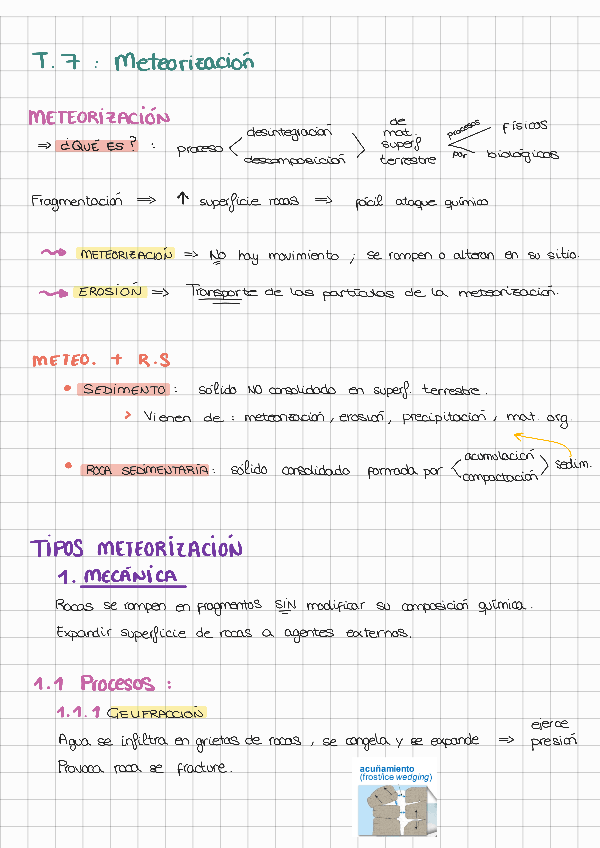 T.7 : Meteorización
METEORIZACIÓN
⇒ ¿QUÉ ES? : proceso < desintegración / descomposición > de mat. superf. terrestre < procesos Físicos / por biológicos
Fragmentación ⇒ ↑ superficie rocas ⇒ fácil ataque químico
METEORIZACIÓN ⇒ No hay movimiento ; se rompen o alteran en su sitio.
EROSIÓN ⇒ Transporte de las partículas de la meteorización.
METEO. + R.S
• SEDIMENTO : sólido NO consolidado en superf. terrestre.
> Vienen de : meteorización, erosión, precipitación, mat. org.
• ROCA SEDIMENTARIA : sólido consolidado formada por < acumulación / compactación > sedim.
TIPOS METEORIZACIÓN
1. MECÁNICA
Rocas se rompen en fragmentos SIN modificar su composición química.
Expandir superficie de rocas a agentes externos.
1.1 Procesos :
1.1.1 GELIFRACCIÓN
Agua se infiltra en grietas de rocas , se congela y se expande ⇒ ejerce presión
Provoca roca se fracture.
acuñamiento
(frost/ice wedging)